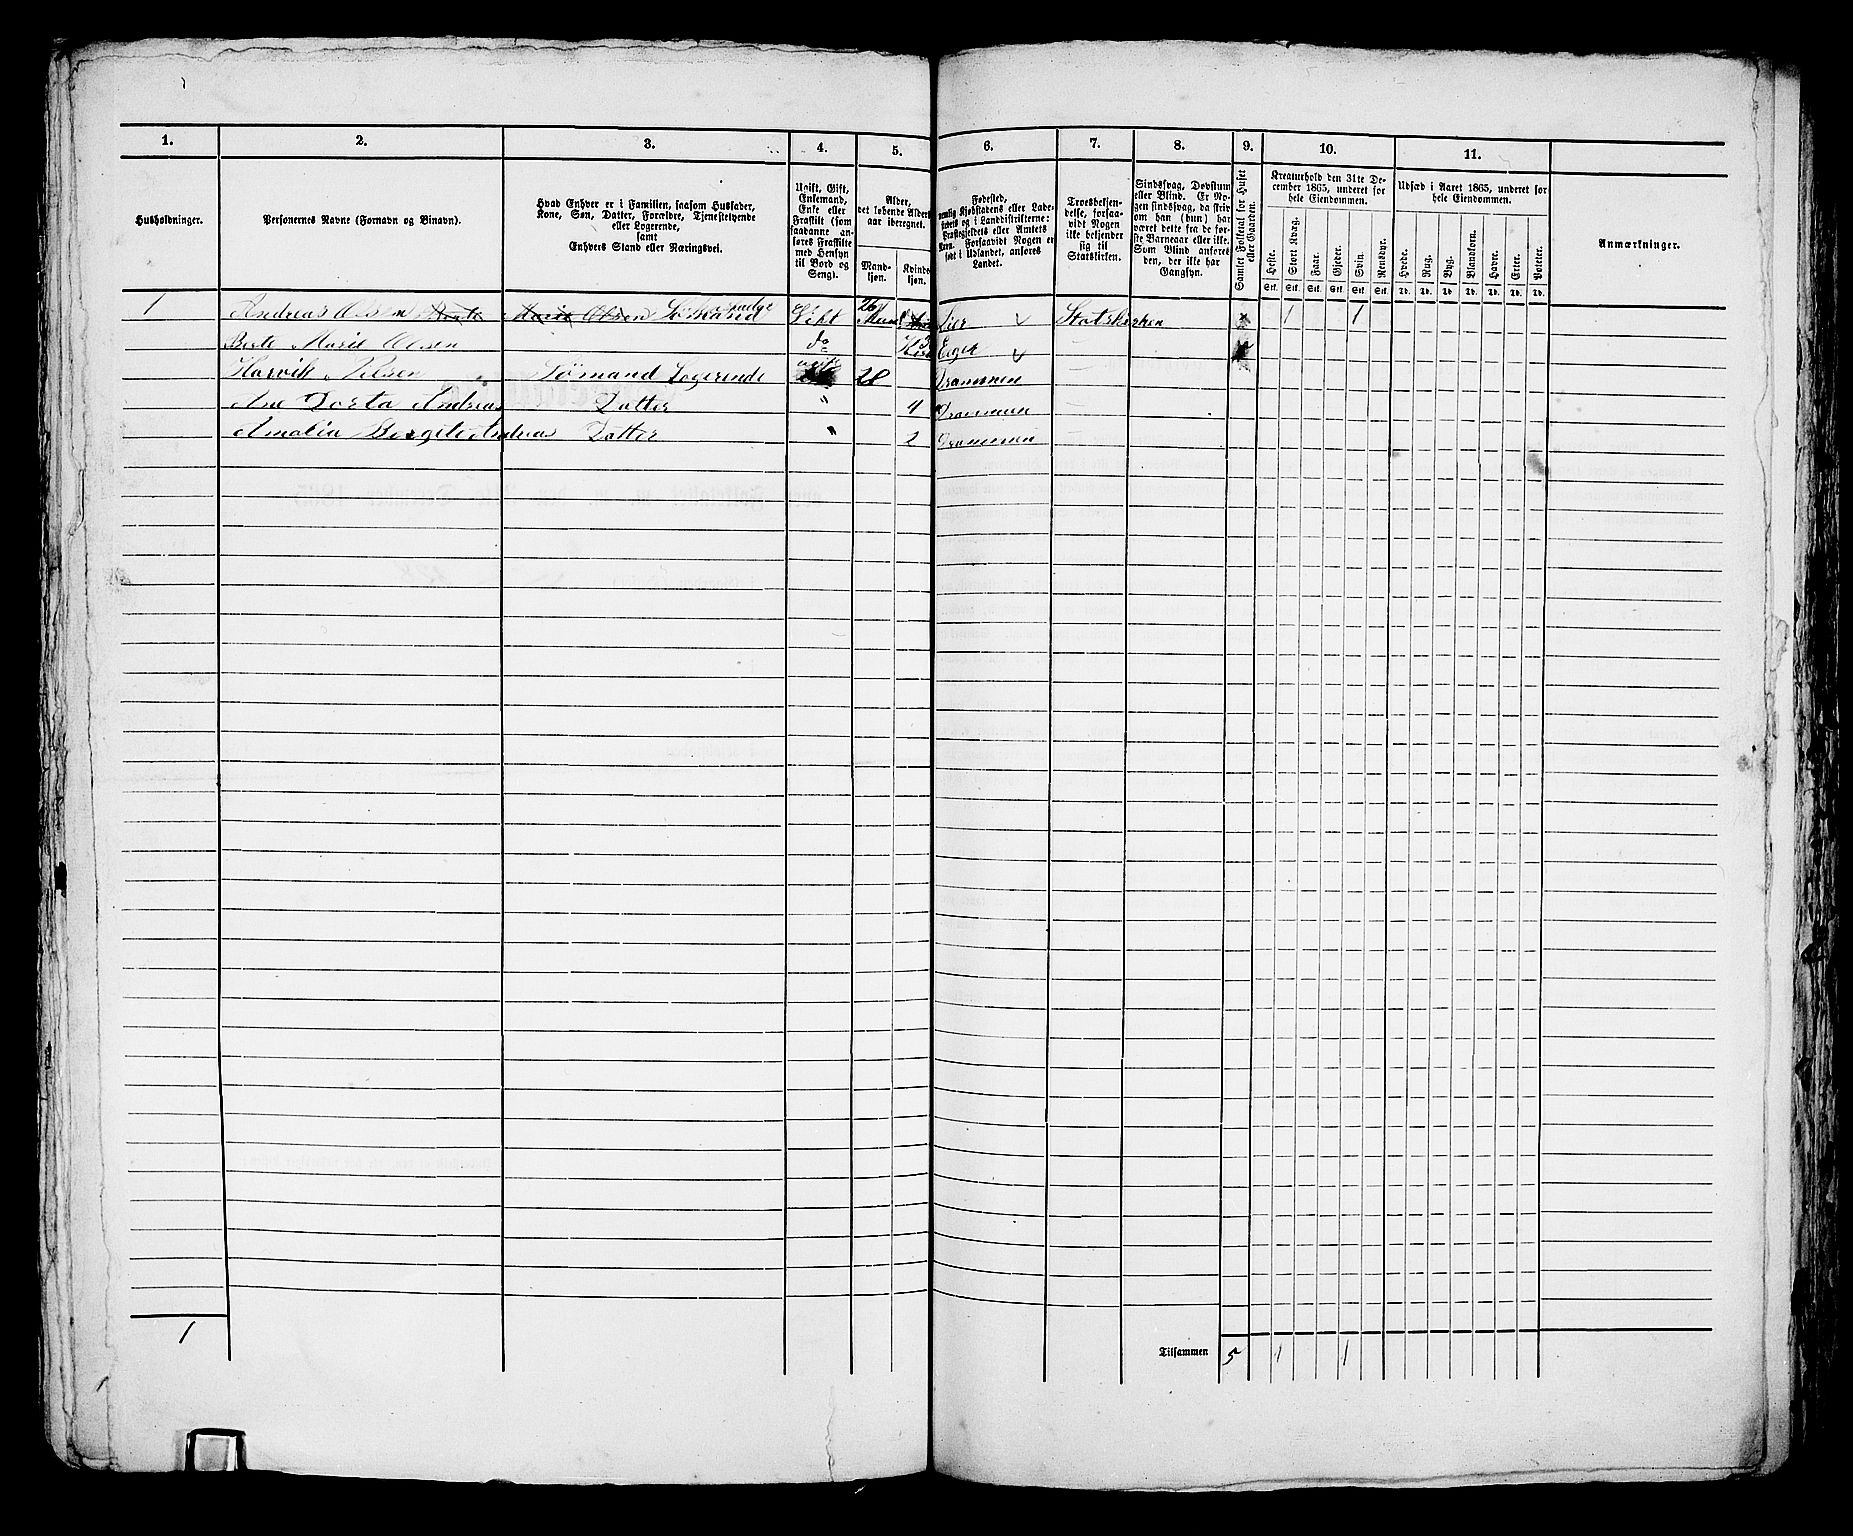 1. 2. 3. 4. 5. 6. 7. 8. 9. 10. 11.
Husholdninger.
Personernes Navne (Fornavn og Binavn).
Hvad Enhver er i Familien, saasom Husfader,
Kone, Søn, Datter, Forældre, Tjenestetyende
eller Logerende,
samt
Enhvers Stand eller Næringsvei.
Ugift, Gift,
Enkemand,
Enke eller
Fraskilt (som
saadanne an-
føres Fraskilte
med Hensyn
til Bord og
Seng).
Alder,
det løbende Alders-
aar iberegnet.
Mand-
kjøn.
Kvinde-
kjøn.
Fødested,
nemlig Kjøbstadens eller Lade-
eller Amtets
Navn. Forsaavidt Nogen er
født i Udlandet, anføres
Landet.
Troesbekjen-
delse, forsaa-
vidt Nogen
ikke bekjender
sig til
Statskirken.
Sindssvag, Døvstum
eller Blind. Er No-
gen sindssvag, da skriv
om han (hun) har
været dette fra de før-
ste Barneaar eller ikke.
Som Blind anføres
den, der ikke har
Gangsyn.
Samlet Folketal for Huset
eller Gaarden.
Kreaturhold den 31te De-
cember 1865, underet for
hele Eiendommen.
Heste. Stort Kvæg. Faar. Gjeder. Svin. Rensdyr.
Stk. Stk. Stk. Stk. Stk. Stk.
Udsæd i Aaret 1865, underet for
hele Eiendommen.
Hvede. Rug. Byg. Blandkorn. Havre. Erter. Poteter.
Td. Td. Td. Td. Td. Td. Td.
Anmærkninger.
1 Andreas Olsen Berte Marie Olsen Sømand Gift 26 Lier Statskirken 1 1
Berte Marie Olsen do Eger
Harvik Nilsen Sømand Logerende ugift 28 Drammen
Ane Dorta Andreas Datter " 4 Drammen
Amalia Bergite Andreas Datter " 2 Drammen
1 Tilsammen 5 1 1